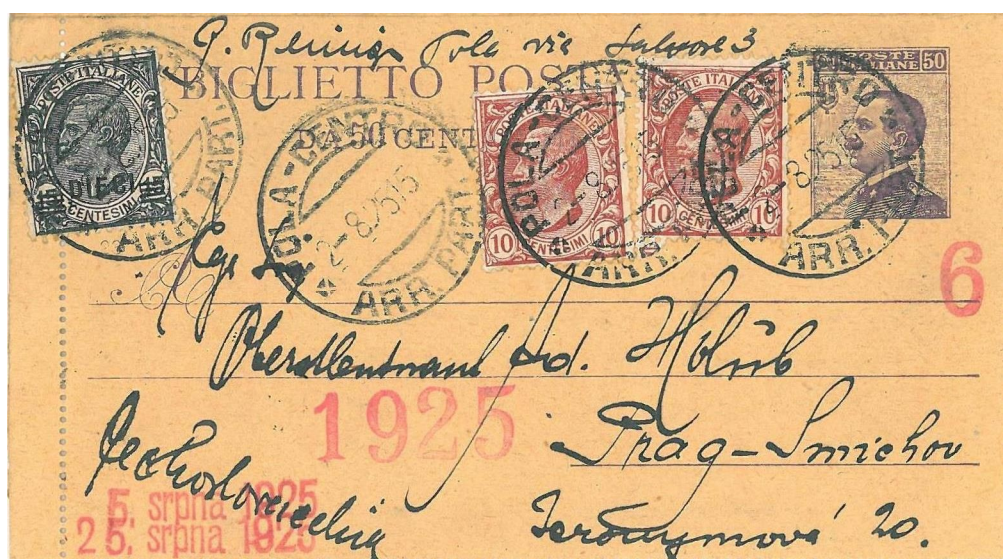 G. Pola via Salvore 3
BIGLIETTO POSTA
DA 50 CENT
POSTE ITALIANE
DIECI
15 15
CENTESIMI
POLA-CENTRO
2-8 25 15
ARR. PART.
POSTE ITALIANE
10 CENTESIMI 10
POSTE ITALIANE
10 CENTESIMI 10
POLA-CENTRO
ARR. PART.
POSTE
ITALIANE 50
6
Oberstleutnant Ad. Holub
1925
Prag-Smichov
Čechoslovechia
5. srpna 1925
25. srpna 1925
Jeronymova 20.